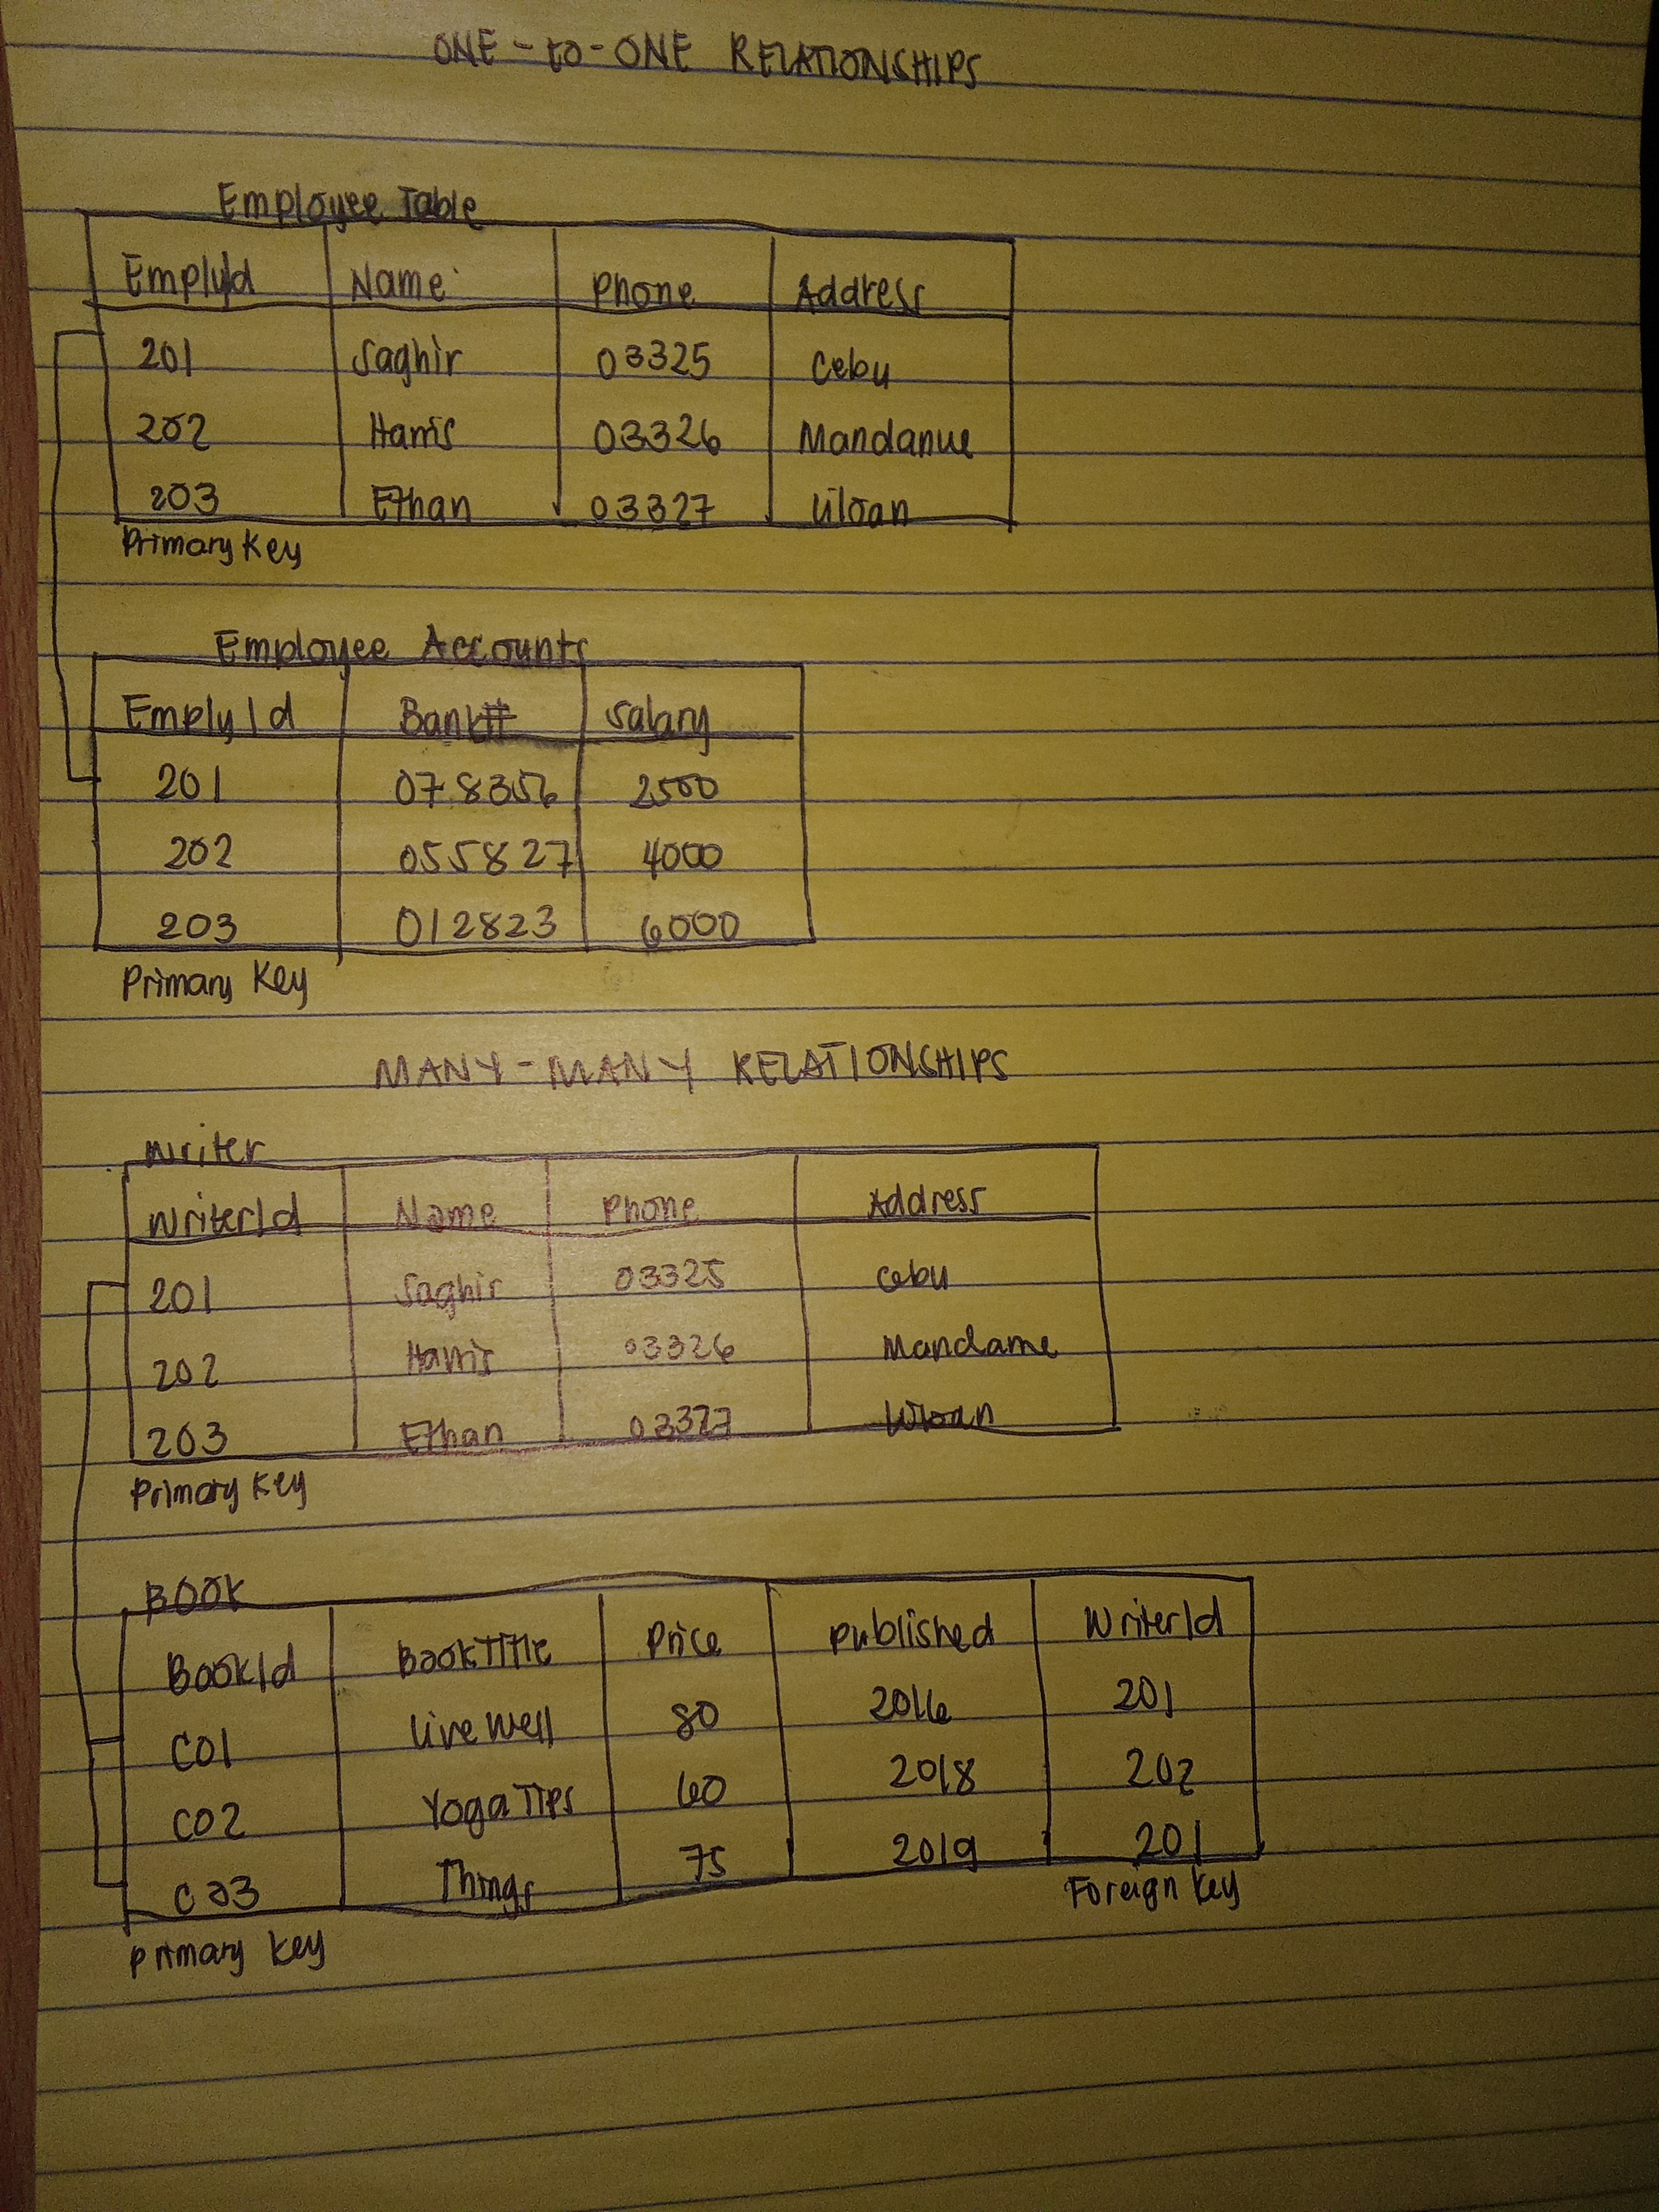 ONE-to-ONE RELATIONSHIPS
Employee Table
EmplyId Name Phone Address
201 Saghir 03325 Cebu
202 Harris 03326 Mandaue
203 Ethan 03327 Liloan
Primary Key
Employee Accounts
EmplyId Bank# Salary
201 078356 2500
202 055827 4000
203 012823 6000
Primary Key
MANY-MANY RELATIONSHIPS
Writer
WriterId Name Phone Address
201 Saghir 03325 Cebu
202 Harris 03326
203 Ethan 03327 Liloan
Primary Key
BOOK
BookId BookTitle Price Published WriterId
C01 Live Well 80 2016 201
C02 Yoga Tips 60 2018 202
C03 Things 75 2019 201
Foreign Key
Primary Key